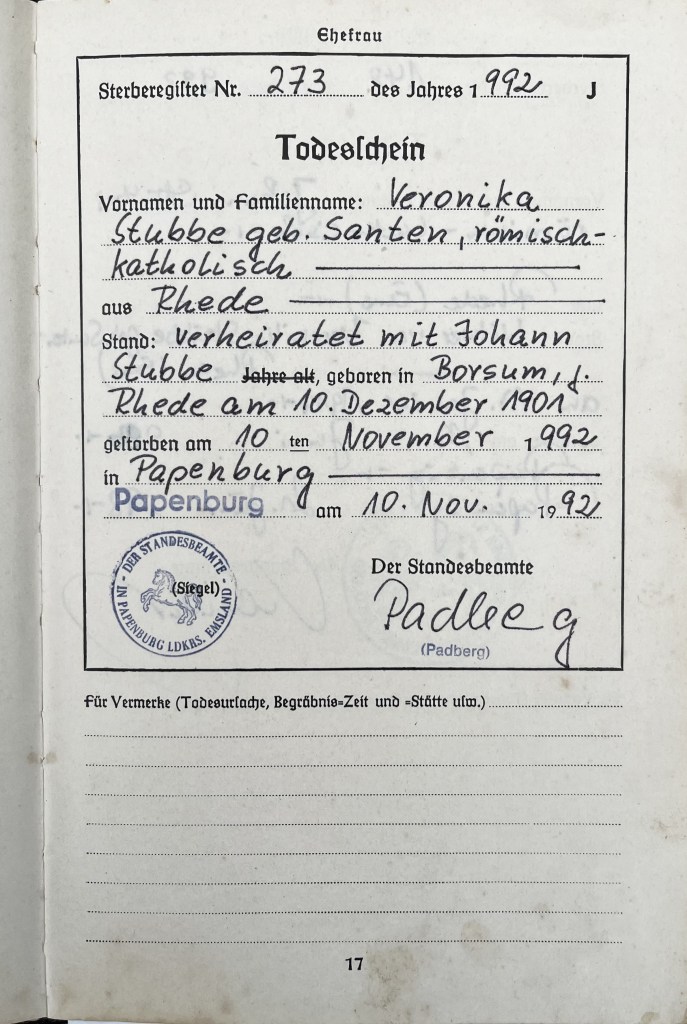 Ehefrau
Sterberegister Nr. 273 des Jahres 1992 J
Todesschein
Vornamen und Familienname: Veronika
Stubbe geb. Santen, römisch-
katholisch
aus Rhede
Stand: verheiratet mit Johann
Stubbe Jahre alt, geboren in Borsum, j.
Rhede am 10. Dezember 1901
gestorben am 10 ten November 1992
in Papenburg
Papenburg am 10. Nov. 1992
DER STANDESBEAMTE - IN PAPENBURG LDKRS. EMSLAND -
(Siegel)
Der Standesbeamte
Padberg
(Padberg)
Für Vermerke (Todesursache, Begräbnis=Zeit und =Stätte usw.)
17